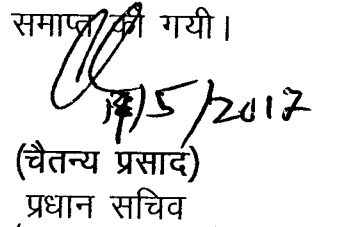 समाप्त की गयी।
/5/2017
(चैतन्य प्रसाद)
प्रधान सचिव